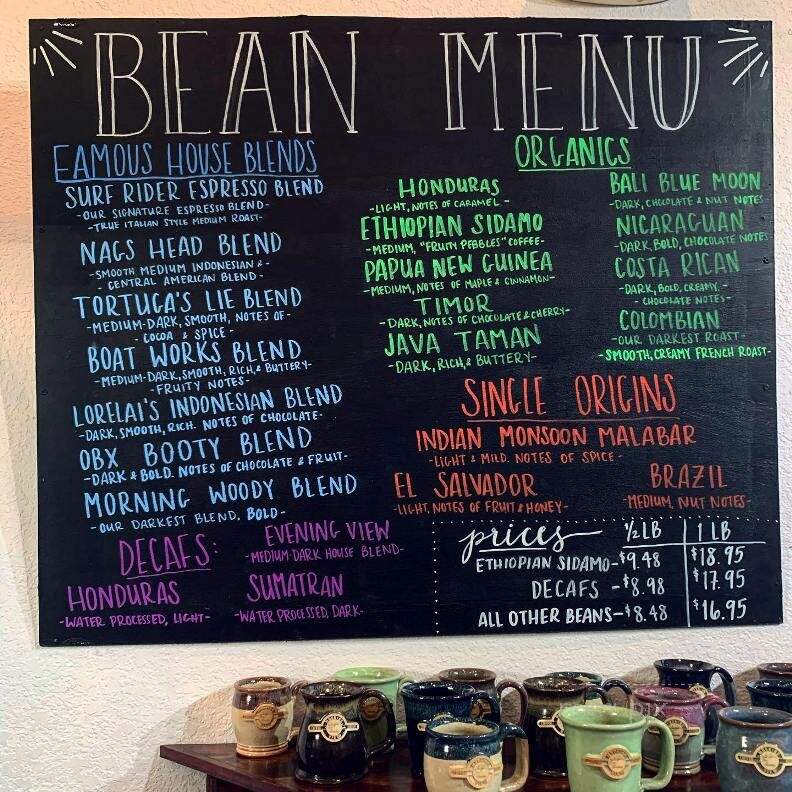 BEAN MENU
FAMOUS HOUSE BLENDS
SURF RIDER ESPRESSO BLEND
-OUR SIGNATURE ESPRESSO BLEND-
-TRUE ITALIAN STYLE MEDIUM ROAST-
NAGS HEAD BLEND
-SMOOTH MEDIUM INDONESIAN &
CENTRAL AMERICAN BLEND-
TORTUGA'S LIE BLEND
-MEDIUM-DARK, SMOOTH, NOTES OF
COCOA & SPICE-
BOAT WORKS BLEND
-MEDIUM-DARK, SMOOTH, RICH, & BUTTERY-
-FRUITY NOTES-
LORELAI'S INDONESIAN BLEND
-DARK, SMOOTH, RICH. NOTES OF CHOCOLATE-
OBX BOOTY BLEND
-DARK & BOLD. NOTES OF CHOCOLATE & FRUIT-
MORNING WOODY BLEND
-OUR DARKEST BLEND, BOLD-
DECAFS:
EVENING VIEW
-MEDIUM-DARK HOUSE BLEND-
HONDURAS
-WATER PROCESSED, LIGHT-
SUMATRAN
-WATER PROCESSED, DARK-
ORGANICS
HONDURAS
-LIGHT, NOTES OF CARAMEL-
ETHIOPIAN SIDAMO
-MEDIUM, "FRUITY PEBBLES" COFFEE-
PAPUA NEW GUINEA
-MEDIUM, NOTES OF MAPLE & CINNAMON-
TIMOR
-DARK, NOTES OF CHOCOLATE & CHERRY-
JAVA TAMAN
-DARK, RICH, & BUTTERY-
BALI BLUE MOON
-DARK, CHOCOLATE & NUT NOTES-
NICARAGUAN
-DARK, BOLD, CHOCOLATE NOTES-
COSTA RICAN
-DARK, BOLD, CREAMY.
CHOCOLATE NOTES-
COLOMBIAN
-OUR DARKEST ROAST-
-SMOOTH, CREAMY FRENCH ROAST-
SINGLE ORIGINS
INDIAN MONSOON MALABAR
-LIGHT & MILD. NOTES OF SPICE-
EL SALVADOR
-LIGHT, NOTES OF FRUIT & HONEY-
BRAZIL
-MEDIUM, NUT NOTES-
prices 1/2 LB 1 LB
ETHIOPIAN SIDAMO-$9.48 $18.95
DECAFS -$8.98 $17.95
ALL OTHER BEANS-$8.48 $16.95